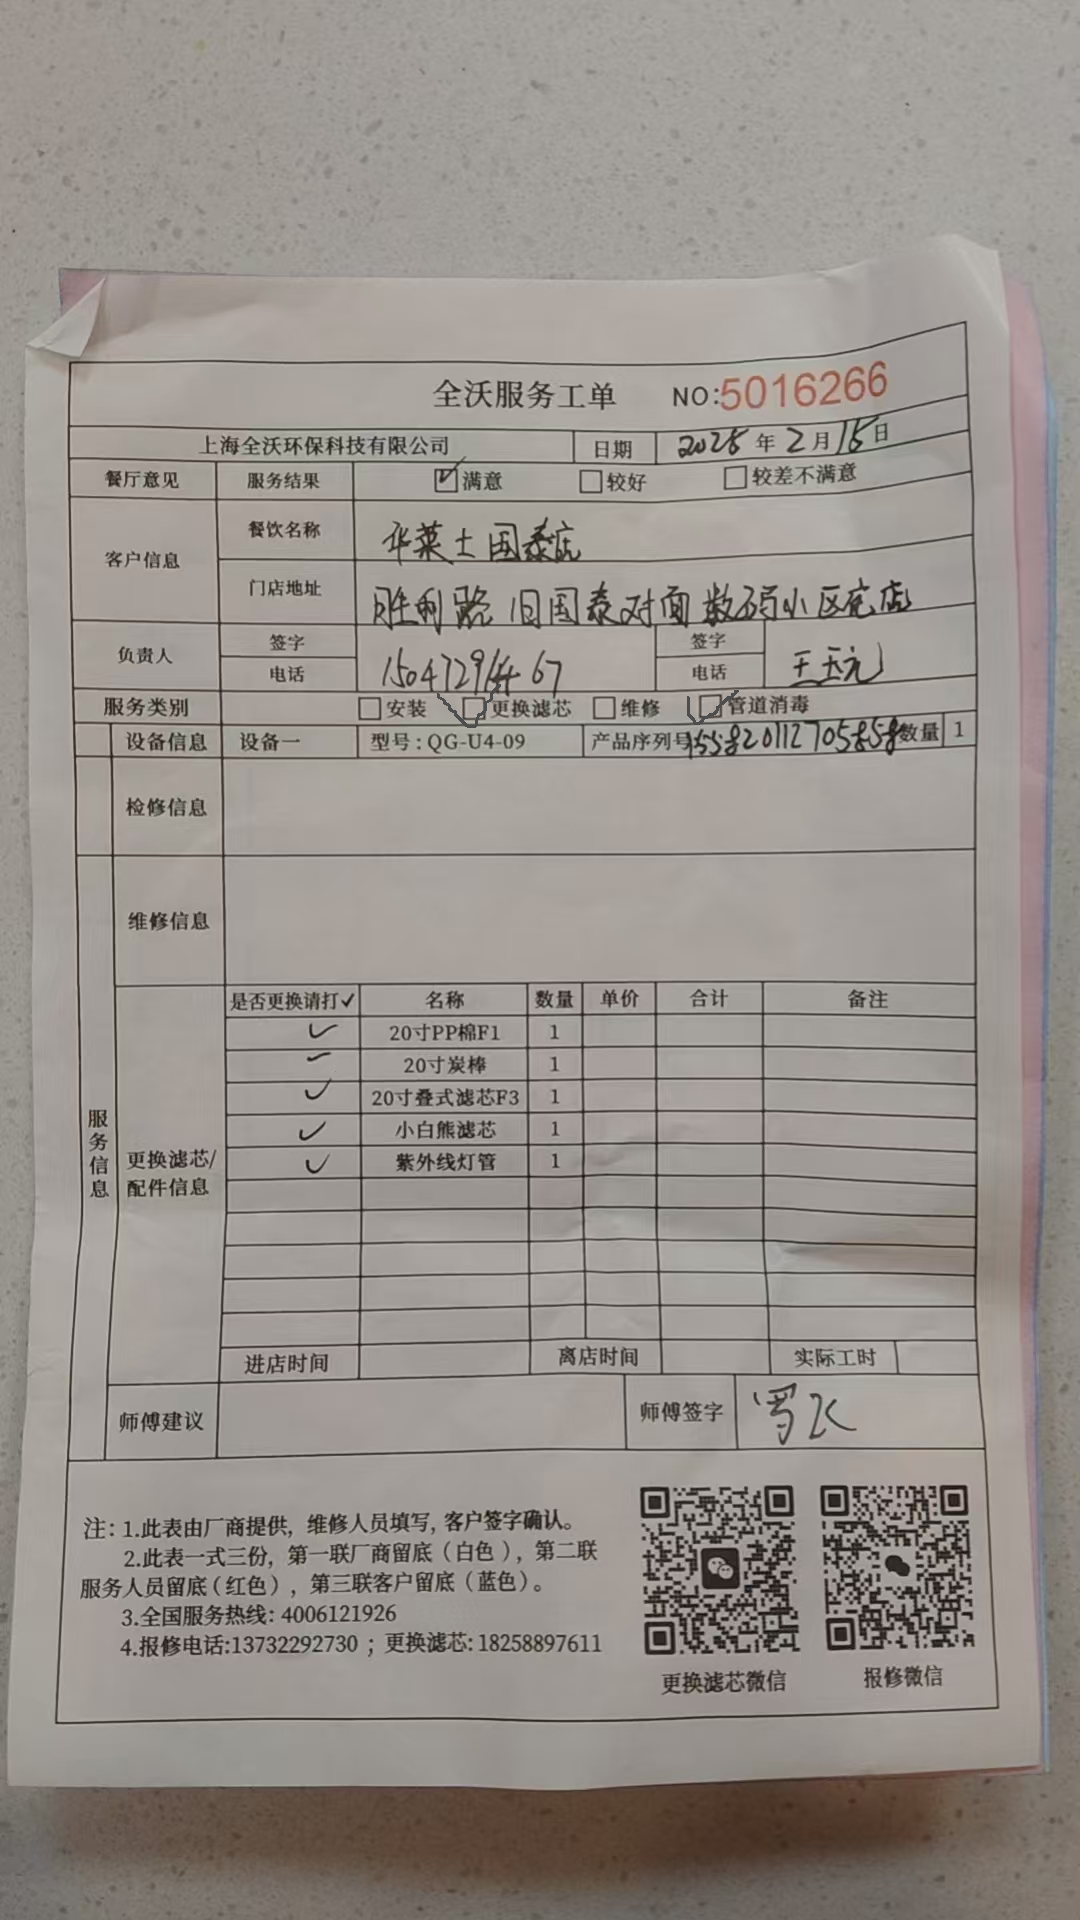 全沃服务工单 NO:5016266
上海全沃环保科技有限公司 日期 2025年2月15日
餐厅意见 服务结果 ☑满意 □较好 □较差不满意
客户信息 餐饮名称 华莱士国泰店
门店地址 胜利路旧国泰对面数码小区底店
负责人 签字 签字
电话 电话 王玉元
服务类别 □安装 ☑更换滤芯 □维修 ☑管道消毒
设备信息 设备一 型号:QG-U4-09 产品序列号 数量 1
检修信息
维修信息
服务信息
更换滤芯/配件信息
是否更换请打✓ 名称 数量 单价 合计 备注
✓ 20寸PP棉F1 1
✓ 20寸炭棒 1
✓ 20寸叠式滤芯F3 1
✓ 小白熊滤芯 1
✓ 紫外线灯管 1
进店时间 离店时间 实际工时
师傅建议 师傅签字 罗飞
注:1.此表由厂商提供,维修人员填写,客户签字确认。
2.此表一式三份,第一联厂商留底(白色),第二联
服务人员留底(红色),第三联客户留底(蓝色)。
3.全国服务热线:4006121926
4.报修电话:13732292730;更换滤芯:18258897611
更换滤芯微信 报修微信